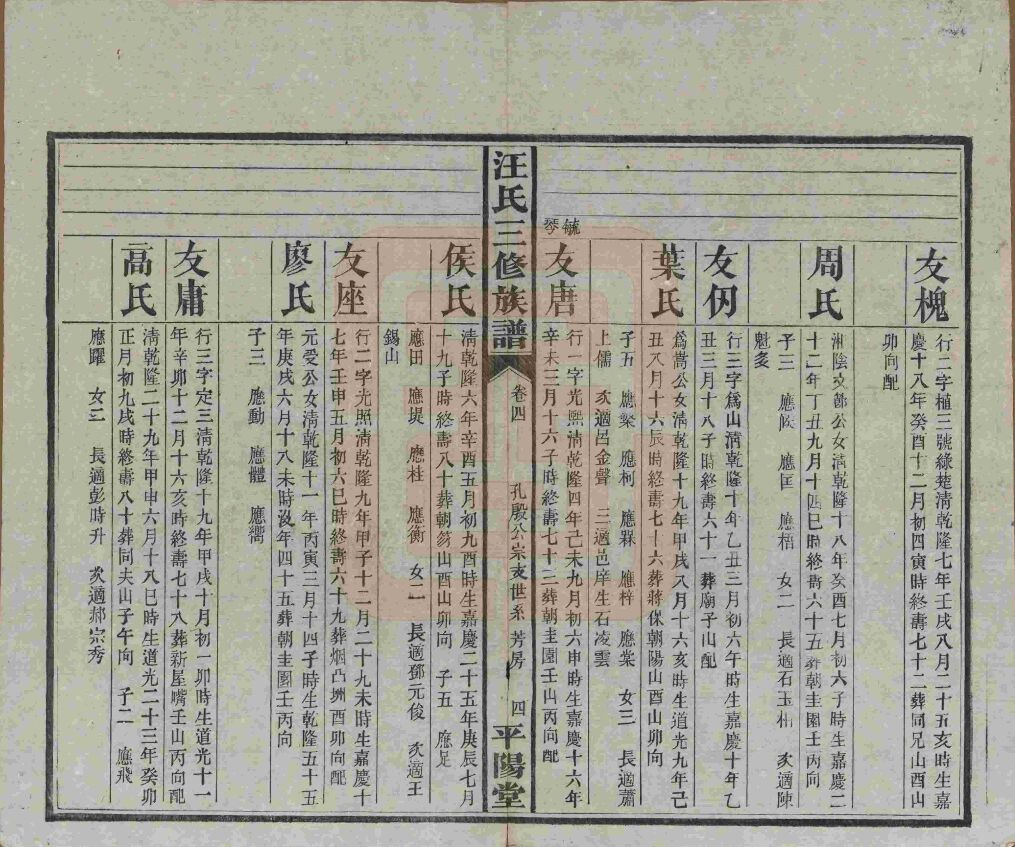 友槐
行二字植三號綠楚淸乾隆七年壬戌八月二十五亥時生嘉
慶十八年癸酉十二月初四寅時終壽七十二葬同兄山酉山
卯向配
周氏
湘陰文鄰公女淸乾隆十八年癸酉七月初六子時生嘉慶二
十二年丁丑九月十四巳時終壽六十五葬朝圭園壬山丙向
子三　應候　應匡　應梧　女二　長適石玉相　次適陳
魁多
友仭
行三字爲山淸乾隆十年乙丑三月初六午時生嘉慶十年乙
丑三月十八子時終壽六十一葬廟子山配
葉氏
爲嵩公女淸乾隆十九年甲戌八月十六亥時生道光九年己
丑八月十六辰時終壽七十六葬蔣保朝陽山酉山卯向
子五　應槃　應柯　應槑　應梓　應棠　女三　長適蕭
上儒　次適呂金聲　三適邑庠生石凌雲
毓琴
友唐
行一字光熙淸乾隆四年己未九月初六申時生嘉慶十六年
辛未三月十六子時終壽七十三葬朝圭園壬山丙向配
汪氏三修族譜
卷四
孔殿公宗支世系
芳房
四
平陽堂
侯氏
淸乾隆六年辛酉五月初九酉時生嘉慶二十五年庚辰七月
十九子時終壽八十葬朝笏山酉山卯向　子五　應足
應田　應堤　應桂　應衡　女二　長適鄧元俊　次適王
錫山
友座
行二字光照淸乾隆九年甲子十二月二十九未時生嘉慶十
七年壬申五月初六巳時終壽六十九葬烟凸坳酉卯向配
廖氏
元受公女淸乾隆十一年丙寅三月十四子時生乾隆五十五
年庚戌六月十八未時沒年四十五葬朝圭園壬丙向
子三　應動　應體　應衢
友庸
行三字定三淸乾隆十九年甲戌十月初一卯時生道光十一
年辛卯十二月十六亥時終壽七十八葬新屋嘴壬山丙向配
高氏
淸乾隆二十九年甲申六月十八巳時生道光二十三年癸卯
正月初九戌時終壽八十葬同夫山子午向　子二　應飛
應曜　女二　長適彭時升　次適郝宗秀